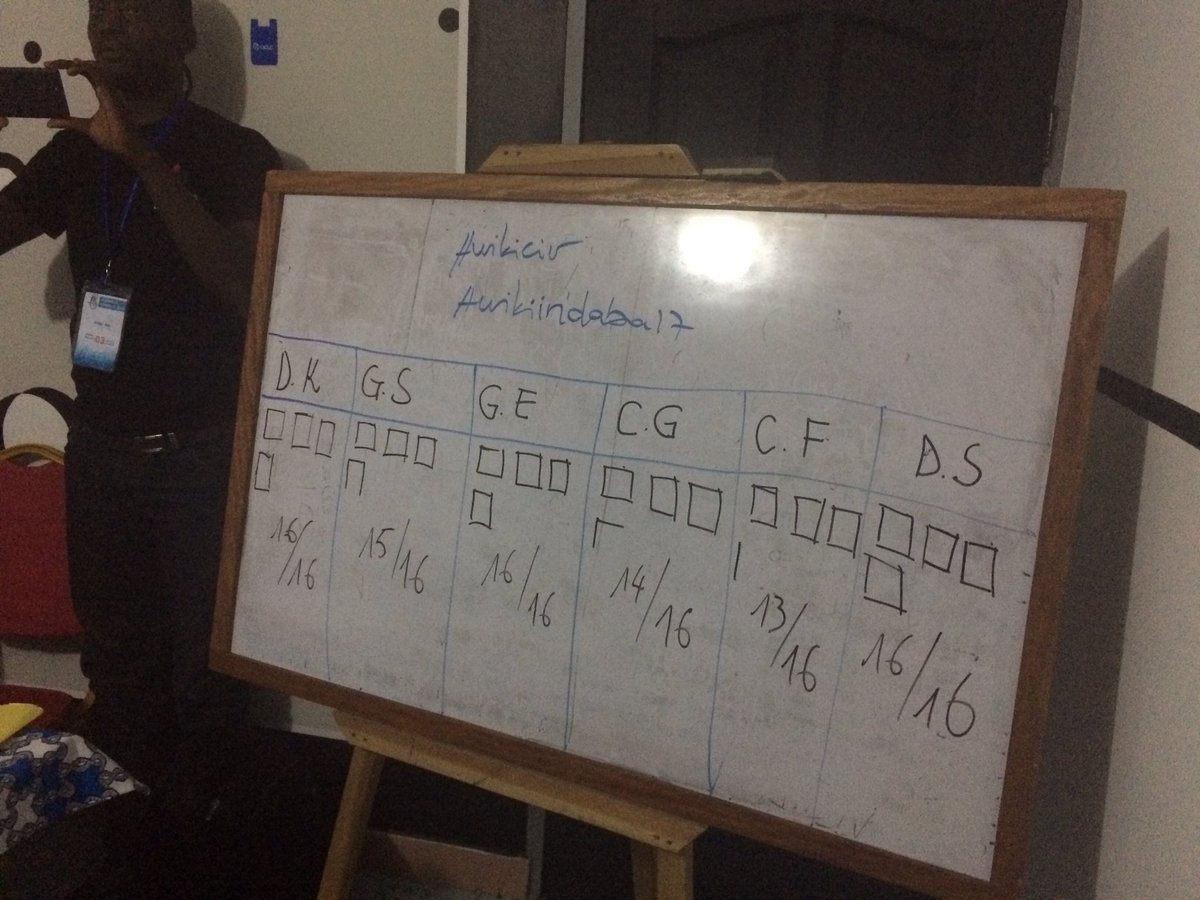 #wikiciv
#wikiindabaa17
D.K G.S G.E C.G C.F D.S
16/16 15/16 16/16 14/16 13/16 16/16